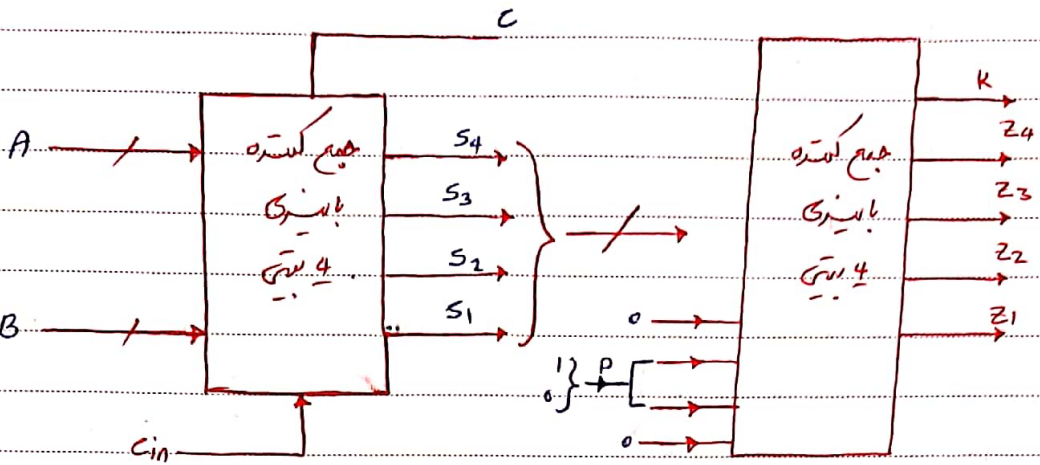 C
A
جمع کننده
باینری
4 بیتی
B
Cin
S4
S3
S2
S1
0
1
0
P
0
جمع کننده
باینری
4 بیتی
K
Z4
Z3
Z2
Z1